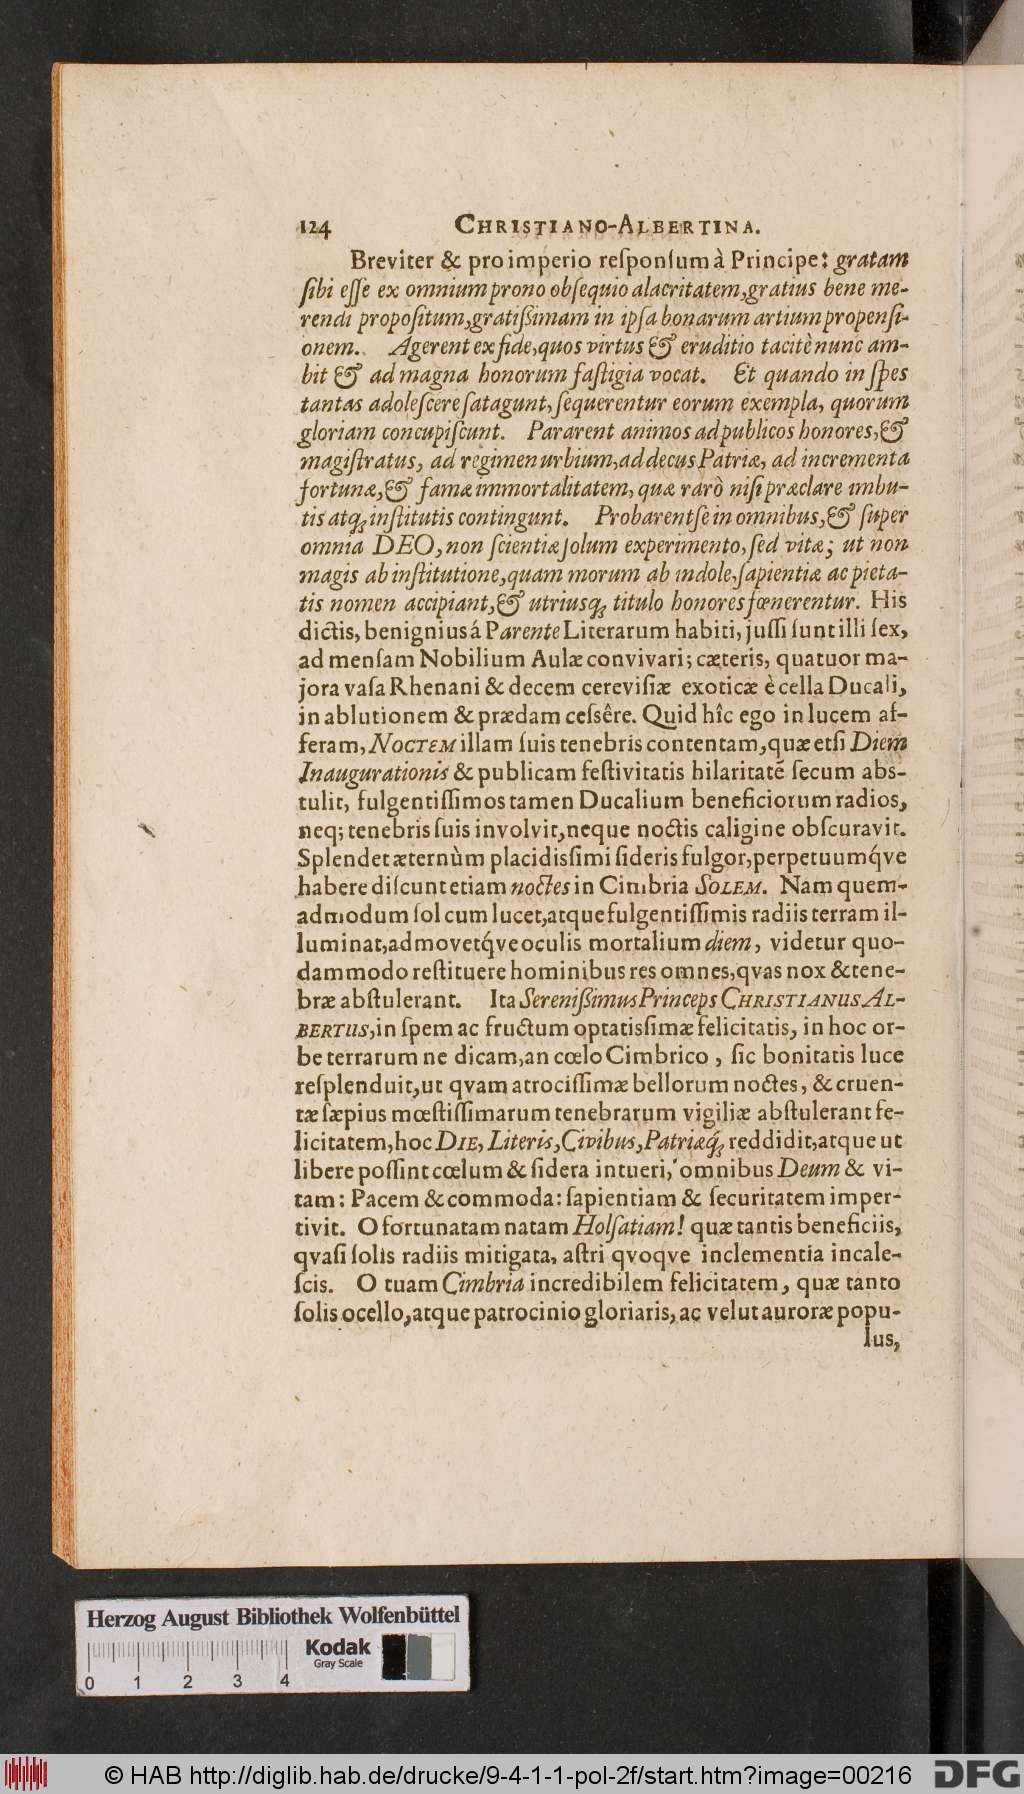 124 CHRISTIANO-ALBERTINA.
Breviter & pro imperio reſponſum à Principe: gratam
ſibi eſſe ex omnium prono obſequio alacritatem, gratius bene me-
rendi propoſitum, gratißimam in ipſa bonarum artium propenſi-
onem. Agerent ex fide, quos virtus & eruditio tacitè nunc am-
bit & ad magna honorum faſtigia vocat. Et quando in ſpes
tantas adoleſcere ſatagunt, ſequerentur eorum exempla, quorum
gloriam concupiſcunt. Pararent animos ad publicos honores, &
magiſtratus, ad regimen urbium, ad decus Patriæ, ad incrementa
fortunæ, & famæ immortalitatem, quæ rarò niſi præclare imbu-
tis atq; inſtitutis contingunt. Probarent ſe in omnibus, & ſuper
omnia DEO, non ſcientiæ ſolum experimento, ſed vitæ; ut non
magis ab inſtitutione, quam morum ab indole, ſapientiæ ac pieta-
tis nomen accipiant, & utriusq; titulo honores fœnerentur. His
dictis, benignius á Parente Literarum habiti, juſſi ſunt illi ſex,
ad menſam Nobilium Aulæ convivari; cæteris, quatuor ma-
jora vaſa Rhenani & decem cereviſiæ exoticæ è cella Ducali,
in ablutionem & prædam ceſsêre. Quid hîc ego in lucem af-
feram, NOCTEM illam ſuis tenebris contentam, quæ etſi Diem
Inaugurationis & publicam feſtivitatis hilaritatē ſecum abs-
tulit, fulgentiſſimos tamen Ducalium beneficiorum radios,
neq; tenebris ſuis involvit, neque noctis caligine obſcuravit.
Splendet æternùm placidisſimi ſideris fulgor, perpetuumq́ve
habere diſcunt etiam noctes in Cimbria SOLEM. Nam quem-
admodum ſol cum lucet, atque fulgentiſſimis radiis terram il-
luminat, admovetq́ve oculis mortalium diem, videtur quo-
dammodo reſtituere hominibus res omnes, qvas nox & tene-
bræ abſtulerant. Ita Sereniſſimus Princeps CHRISTIANUS AL-
BERTUS, in ſpem ac fructum optatisſimæ felicitatis, in hoc or-
be terrarum ne dicam, an cœlo Cimbrico, ſic bonitatis luce
reſplenduit, ut qvam atrociſſimæ bellorum noctes, & cruen-
tæ ſæpius mœſtiſſimarum tenebrarum vigiliæ abſtulerant fe-
licitatem, hoc DIE, Literis, Civibus, Patriæq́; reddidit, atque ut
libere poſſint cœlum & ſidera intueri, omnibus Deum & vi-
tam: Pacem & commoda: ſapientiam & ſecuritatem imper-
tivit. O fortunatam natam Holſatiam! quæ tantis beneficiis,
qvaſi ſolis radiis mitigata, aſtri qvoqve inclementia incale-
ſcis. O tuam Cimbria incredibilem felicitatem, quæ tanto
ſolis ocello, atque patrocinio gloriaris, ac velut auroræ popu-
lus,
Herzog August Bibliothek Wolfenbüttel
Kodak
Gray Scale
0 1 2 3 4
© HAB http://diglib.hab.de/drucke/9-4-1-1-pol-2f/start.htm?image=00216
DFG